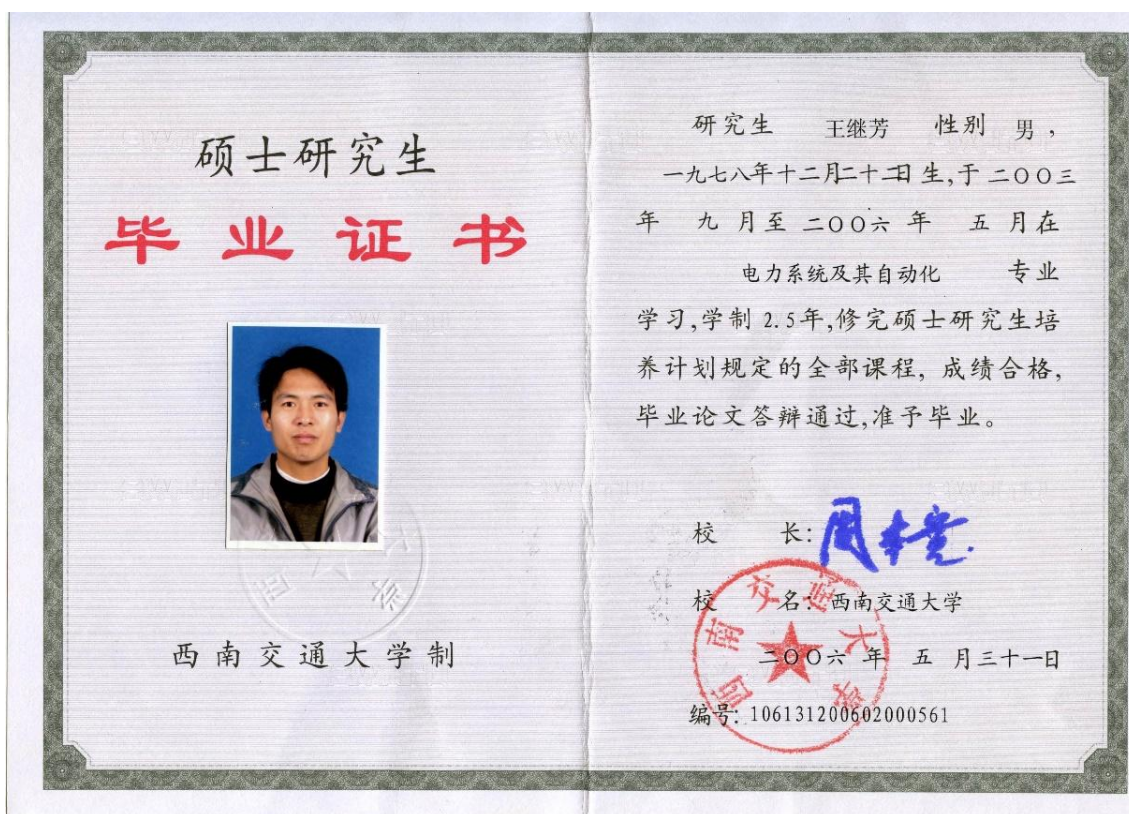 硕士研究生
毕业证书
西南交通大学制
研究生 王继芳 性别 男,
一九七八年十二月二十二日生,于二〇〇三
年 九 月至 二〇〇六 年 五 月在
电力系统及其自动化 专业
学习,学制 2.5年,修完硕士研究生培
养计划规定的全部课程, 成绩合格,
毕业论文答辩通过,准予毕业。
校 长:
校 名: 西南交通大学
二〇〇六 年 五 月三十一日
编号: 106131200602000561
西南交通大学